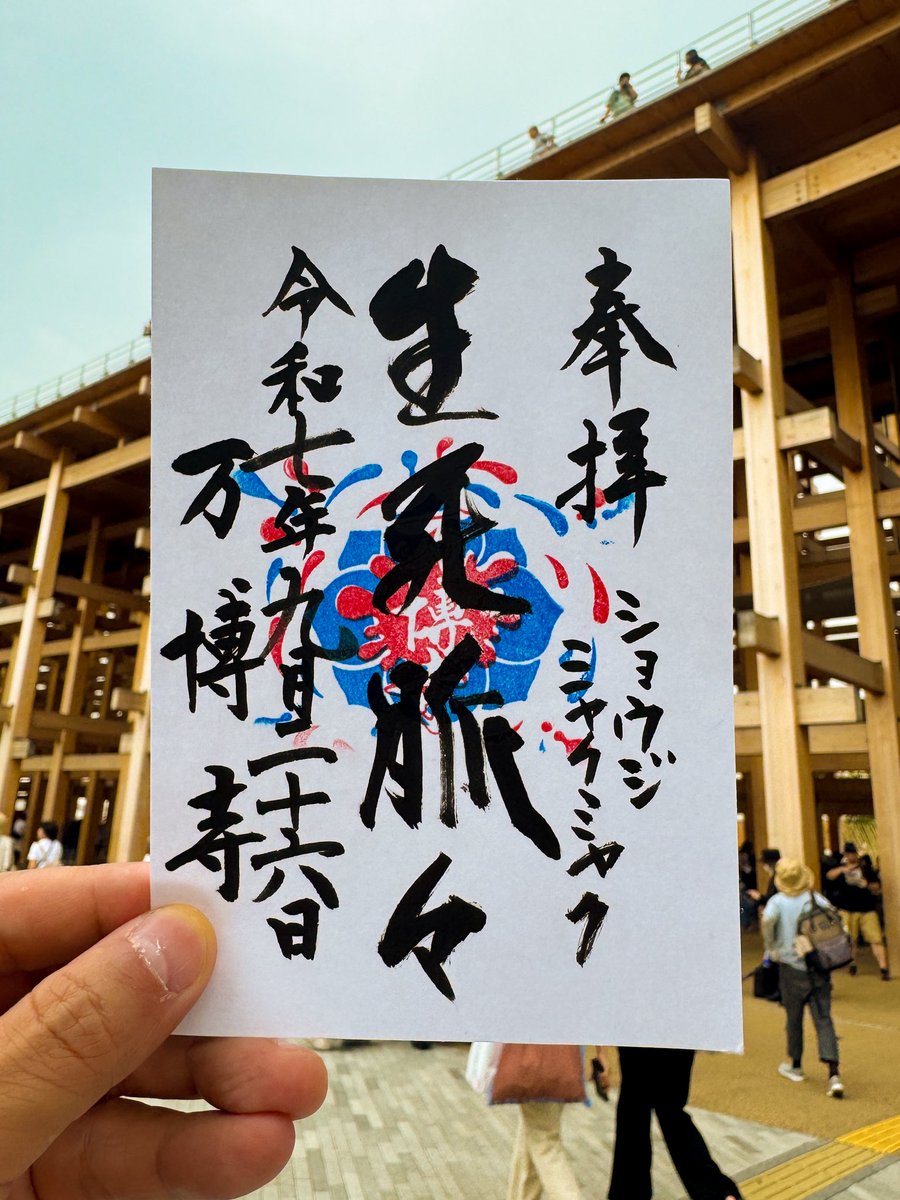 奉拝
ショウジ
ミャクミャク
生死脈々
博
令和七年九月二十六日
万博寺